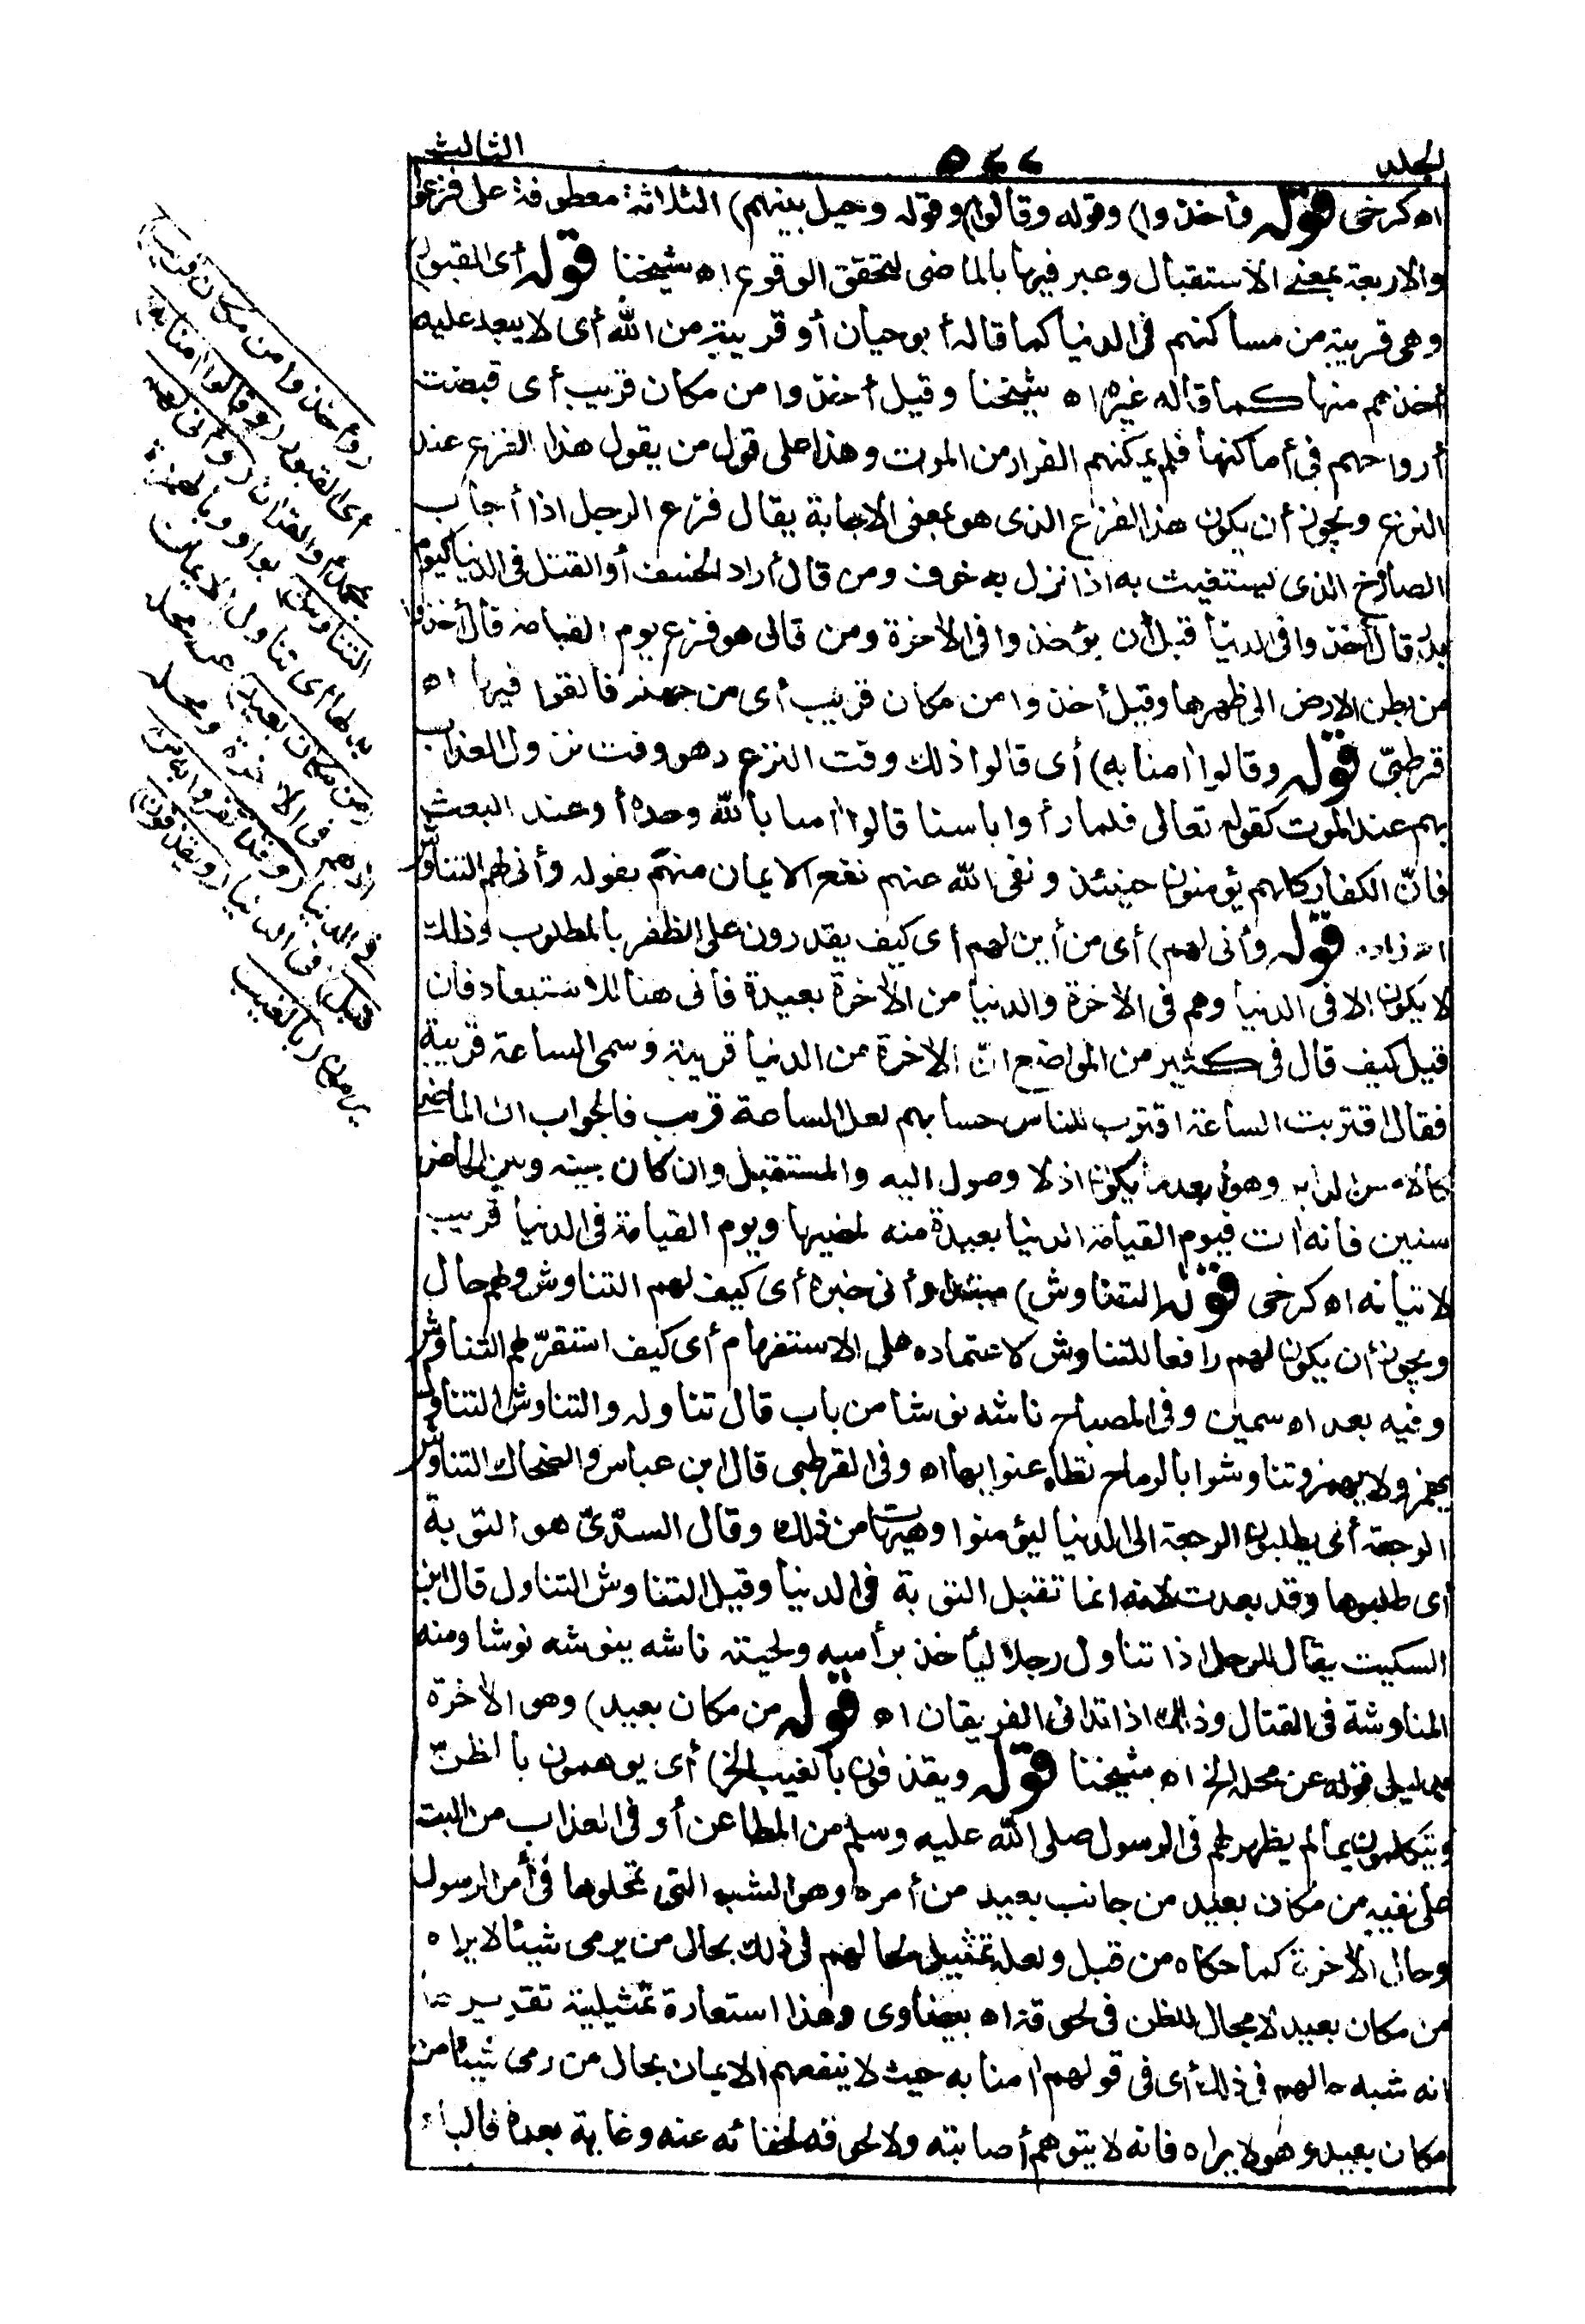 المجلد ٥٤٤ الثالث
اه كرخى قوله وأخذوا) وقوله وقالوا) وقوله وحيل بينهم) الثلاثة معطوفة على فزعوا
والاربعة بمعنى الاستقبال وعبر فيها بالماضى لتحقق الوقوع اه شيخنا قوله أى القبور)
وهى قريبة من مساكنهم فى الدنيا كما قاله أبو حيان أو قريبة من الله أى لا يبعد عليه
أخذهم منها كما قاله غيره اه شيخنا وقيل أخذوا من مكان قريب أى قبضت
أرواحهم فى أماكنها فلم يمكنهم الفرار من الموت وهذا على قول من يقول هذا الفزع عند
النزع ويجوز أن يكون هذا الفزع الذى هو بمعنى الاجابة يقال فزع الرجل اذا أجاب
الصارخ الذى يستغيث به اذا نزل به خوف ومن قال أراد الخسف أو القتل فى الدنيا كيوم
بدر قال أخذوا فى الدنيا قبل أن يؤخذوا فى الآخرة ومن قال هو فزع يوم القيامة قال أخذوا
من بطن الارض الى ظهرها وقيل أخذوا من مكان قريب أى من جهنم فالقوا فيها اه
قرطبىّ قوله وقالوا امنا به) أى قالوا ذلك وقت النزع وهو وقت نزول العذاب
بهم عند الموت كقوله تعالى فلما رأوا باسنا قالوا امنا بالله وحده أو عند البعث
فانّ الكفار كلهم يؤمنون حينئذ ونفى الله عنهم نفع الايمان منهم بقوله وأنى لهم التناوش
اه زاده قوله وأنى لهم) أى من أين لهم أى كيف يقدرون على الظفر بالمطلوب وذلك
لا يكون الا فى الدنيا وهم فى الآخرة والدنيا من الآخرة بعيدة فأنى هنا للاستبعاد فان
قيل كيف قال فى كثير من المواضع انّ الآخرة من الدنيا قريبة وسمى الساعة قريبة
فقال اقتربت الساعة اقترب للناس حسابهم لعل الساعة قريب فالجواب ان الماضى
كالامس الدابر وهو أبعد ما يكون اذ لا وصول اليه والمستقبل وان كان بينه وبين الحاضر
سنين فانه ات فيوم القيامة الدنيا بعيدة منه لمضيها ويوم القيامة فى الدنيا قريب
لاتيانه اه كرخى قوله التناوش) مبتدأ وأنى خبره أى كيف لهم التناوش ولهم حال
ويجوز أن يكون لهم رافعا للتناوش لاعتماده على الاستفهام أى كيف استقرّ لهم التناوش
وفيه بعد اه سمين وفى المصباح ناشه نوشا من باب قال تناوله والتناوش التناول
يهمز ولا يهمز وتناوشوا بالرماح تطاعنوا بها اه وفى القرطبى قال ابن عباس والضحاك التناوش
الرجعة أى يطلبون الرجعة الى الدنيا ليؤمنوا وهيهات من ذلك وقال السدّىّ هو التوبة
أى طلبوها وقد بعدت لانه انما تقبل التوبة فى الدنيا وقيل التناوش التناول قال ابن
السكيت يقال للرجل اذا تناول رجلا ليأخذ برأسه ولحيته ناشه ينوشه نوشا ومنه
المناوشة فى القتال وذلك اذا تدانى الفريقان اه قوله من مكان بعيد) وهو الآخرة
قوله عن محله الخ اه شيخنا قوله ويقذفون بالغيب الخ) أى يوهمون بالظنّ
ويتكلمون بما لم يظهر لهم فى الرسول صلى الله عليه وسلم من المطاعن أو فى العذاب من البت
على نفيه من مكان بعيد من جانب بعيد من أمره وهو الشبه التى تمحلوها فى أمر الرسول
وحال الآخرة كما حكاه من قبل ولعله تمثيل لحالهم فى ذلك بحال من يرمى شيئا لا يراه
من مكان بعيد لا مجال للظن فى لحوقه اه بيضاوى وهذا استعارة تمثيلية تقريرها
انه شبه حالهم فى ذلك أى فى قولهم امنا به حيث لا ينفعهم الايمان بحال من رمى شيئا من
مكان بعيد وهو لا يراه فانه لا يتوهم أصابته ولا لحوقه لخفائه عنه وغاية بعده فالباء
(وأخذوا من مكان قريب)
أى القبور (وقالوا امنا به)
بمحمد أو القران (وأنى لهم
التناوش) بواو وبالهمزة
بدلها أى تناول الايمان
(من مكان بعيد) عن محله
اذ هم فى الآخرة ومحله
فى الدنيا (وقد كفروا به من
قبل) فى الدنيا (ويقذفون)
يرمون (بالغيب